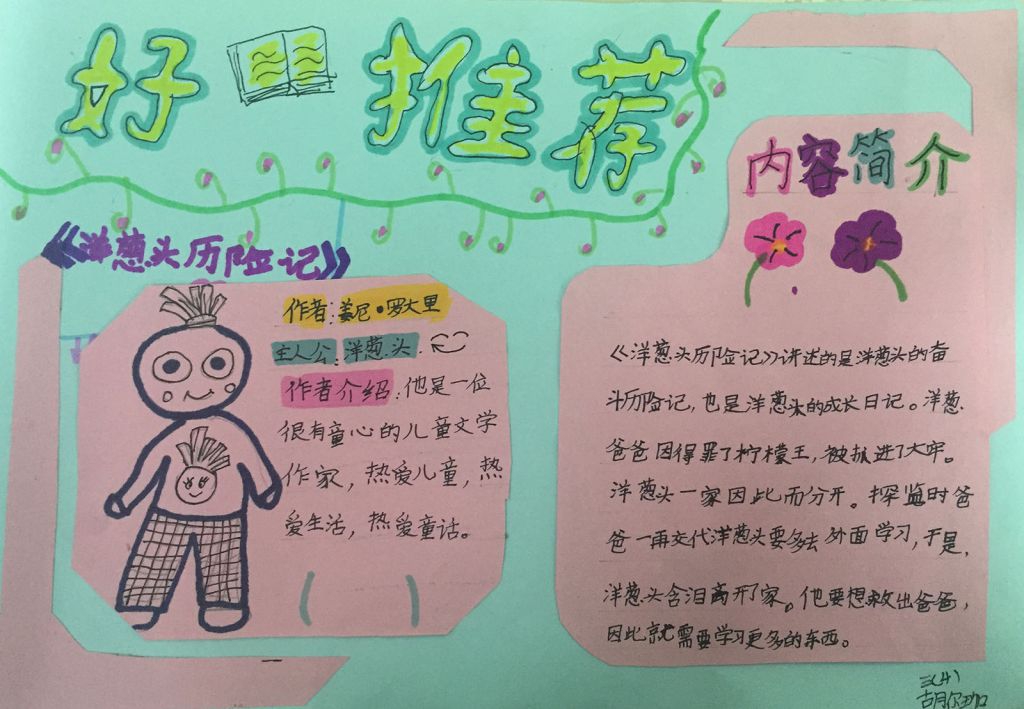 好 推荐
《洋葱头历险记》
作者:姜尼•罗大里
主人公:洋葱头.
作者介绍:他是一位
很有童心的儿童文学
作家,热爱儿童,热
爱生活,热爱童话。
内容简介
《洋葱头历险记》讲述的是洋葱头的奋
斗历险记,也是洋葱头的成长日记。洋葱
爸爸因得罪了柠檬王,被抓进了大牢。
洋葱头一家因此而分开。探监时爸
爸一再交代洋葱头要多去外面学习,于是,
洋葱头含泪离开了家。他要想救出爸爸,
因此就需要学习更多的东西。
三(4)
胡尔珈